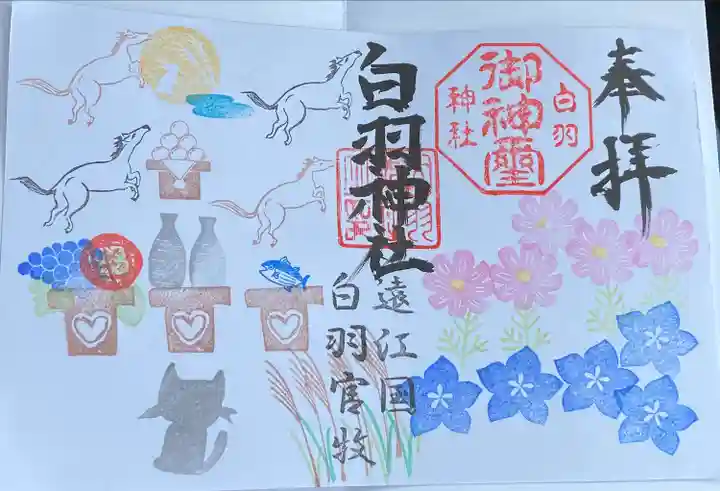 奉拝
白羽
御神璽
神社
白羽神社
遠江国
白羽官牧